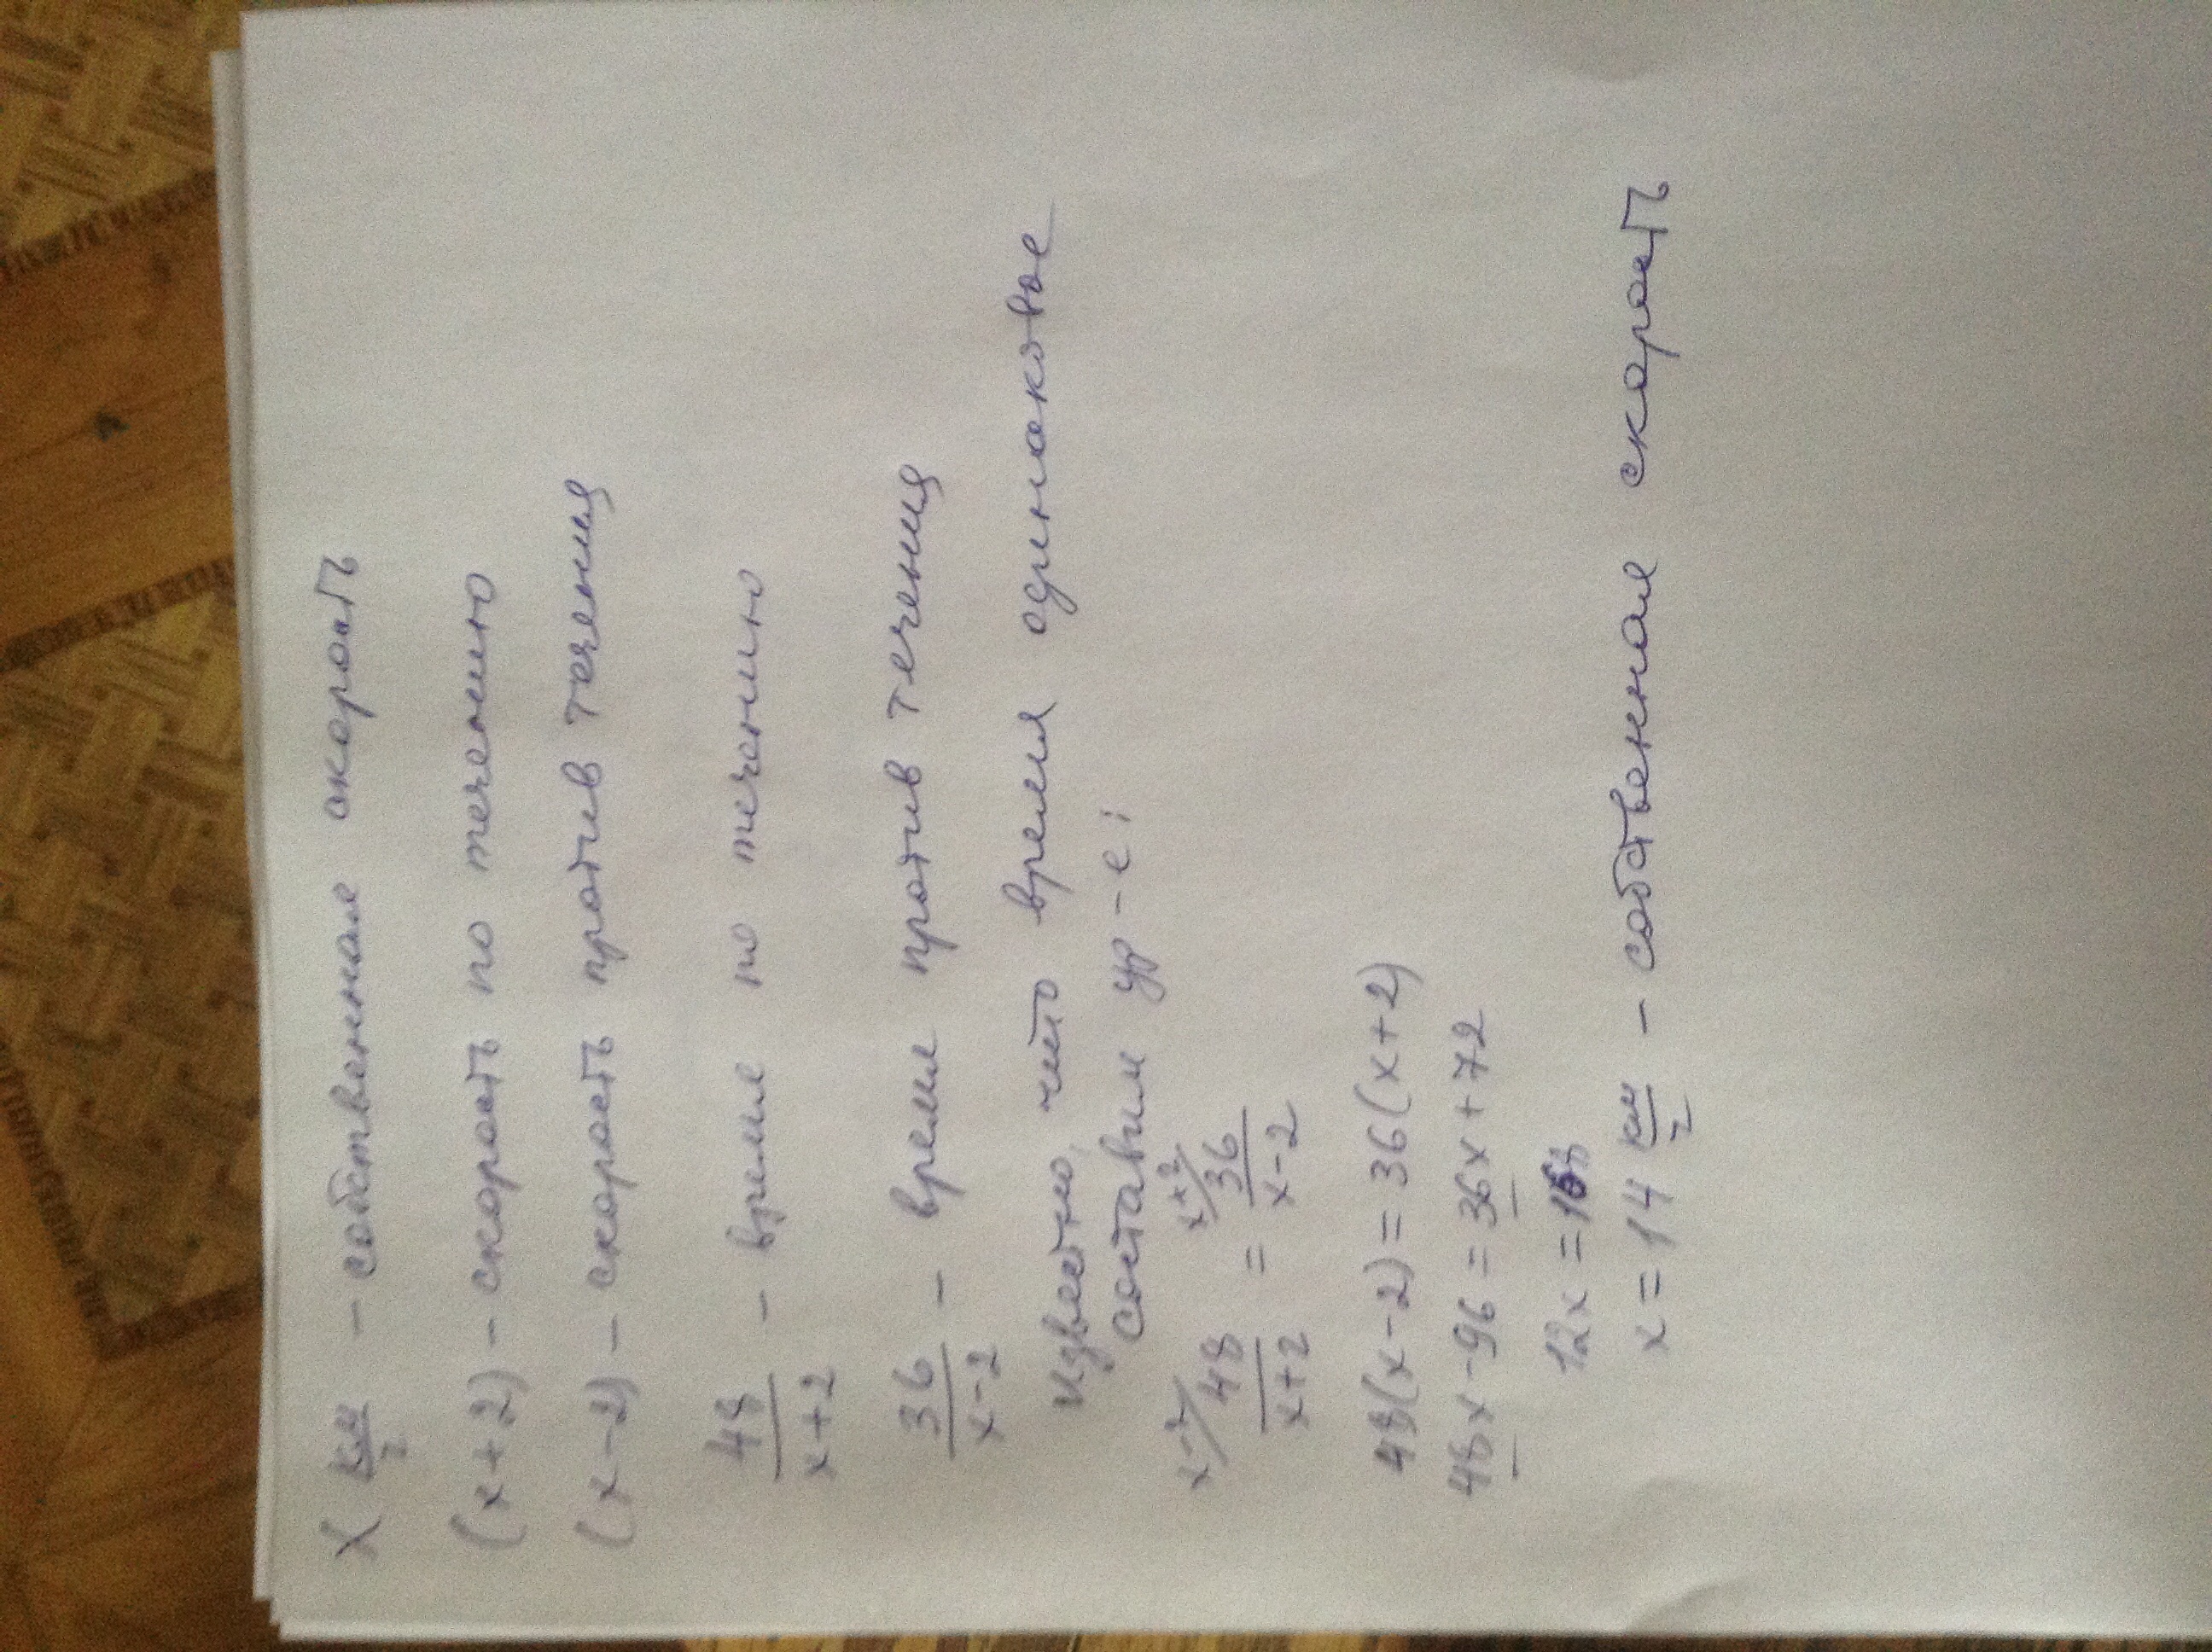 X км/г – собственная скорость
(x+2) – скорость по течению
(x-2) – скорость против течения
48/x+2 – время по течению
36/x-2 – время против течения
Известно, что время одинаковое
составим ур-е:
x-2/ 48/x+2 = x+2/ 36/x-2
48(x-2) = 36(x+2)
48x-96 = 36x+72
12x = 168
x = 14 км/г – собственная скорость